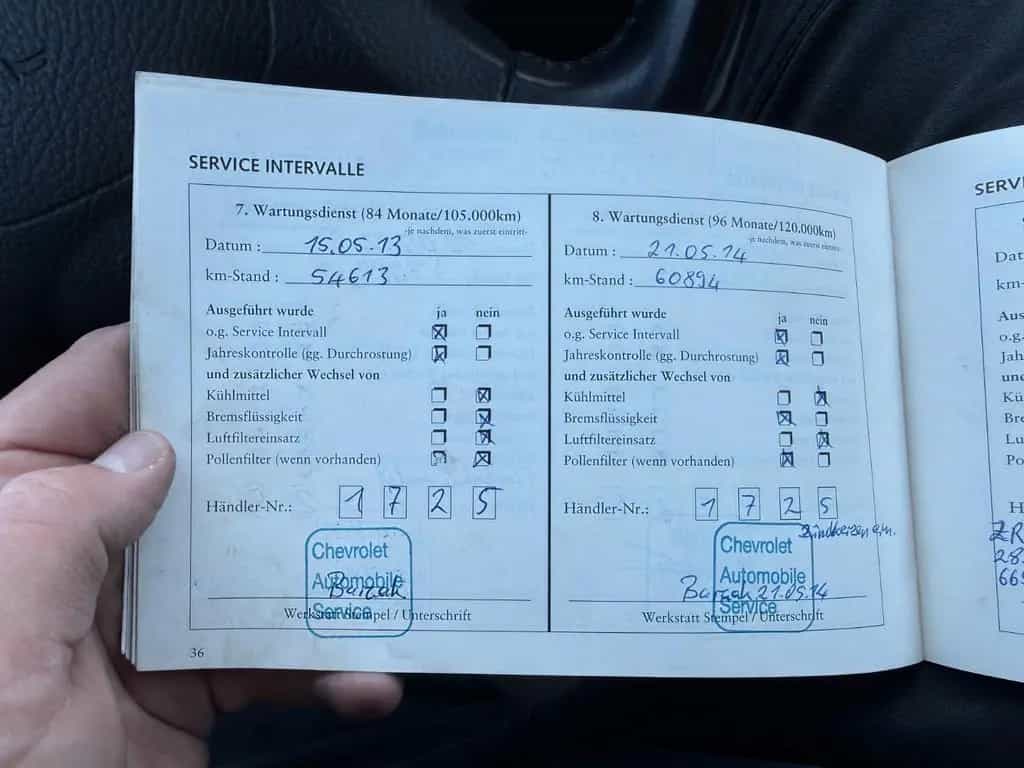 SERVICE INTERVALLE
7. Wartungsdienst (84 Monate/105.000km)
-je nachdem, was zuerst eintritt-
Datum : 15.05.13
km-Stand : 54613
Ausgeführt wurde ja nein
o.g. Service Intervall
Jahreskontrolle (gg. Durchrostung)
und zusätzlicher Wechsel von
Kühlmittel
Bremsflüssigkeit
Luftfiltereinsatz
Pollenfilter (wenn vorhanden)
Händler-Nr.: 1 7 2 5
Chevrolet
Automobile
Service
Werkstatt Stempel / Unterschrift
36
8. Wartungsdienst (96 Monate/120.000km)
-je nachdem, was zuerst eintritt-
Datum : 21.05.14
km-Stand : 60894
Ausgeführt wurde ja nein
o.g. Service Intervall
Jahreskontrolle (gg. Durchrostung)
und zusätzlicher Wechsel von
Kühlmittel
Bremsflüssigkeit
Luftfiltereinsatz
Pollenfilter (wenn vorhanden)
Händler-Nr.: 1 7 2 5
Chevrolet
Automobile
Service
21.05.14
Werkstatt Stempel / Unterschrift
SERVI
Dat
km-
Aus
o.g.
Jah
und
Kü
Bre
Lu
Po
H